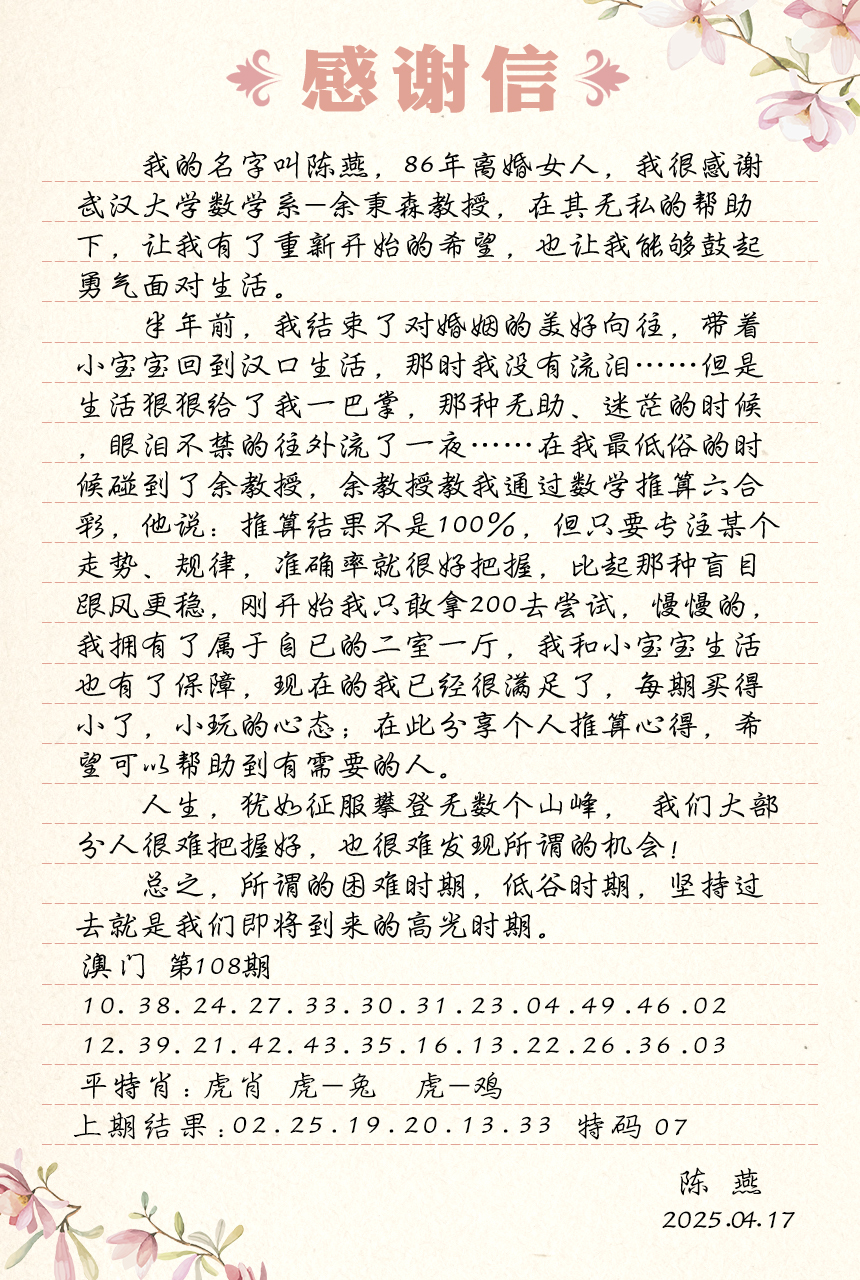 感谢信
我的名字叫陈燕，86年离婚女人，我很感谢
武汉大学数学系—余秉森教授，在其无私的帮助
下，让我有了重新开始的希望，也让我能够鼓起
勇气面对生活。
半年前，我结束了对婚姻的美好向往，带着
小宝宝回到汉口生活，那时我没有流泪……但是
生活狠狠给了我一巴掌，那种无助、迷茫的时候
，眼泪不禁的往外流了一夜……在我最低俗的时
候碰到了余教授，余教授教我通过数学推算六合
彩，他说：推算结果不是100%，但只要专注某个
走势、规律，准确率就很好把握，比起那种盲目
跟风更稳，刚开始我只敢拿200去尝试，慢慢的，
我拥有了属于自已的二室一厅，我和小宝宝生活
也有了保障，现在的我已经很满足了，每期买得
小了，小玩的心态；在此分享个人推算心得，希
望可以帮助到有需要的人。
人生，犹如征服攀登无数个山峰， 我们大部
分人很难把握好，也很难发现所谓的机会！
总之，所谓的困难时期，低谷时期，坚持过
去就是我们即将到来的高光时期。
澳门 第108期
10.38.24.27.33.30.31.23.04.49.46.02
12.39.21.42.43.35.16.13.22.26.36.03
平特肖：虎肖 虎—兔 虎—鸡
上期结果：02.25.19.20.13.33 特码 07
陈 燕
2025.04.17